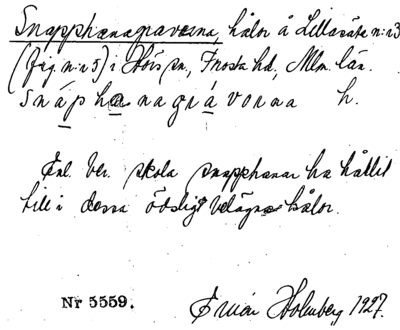 Snapphanagravarna, hålor å Lillasäte n:r 3
(fig. n:r 5) i Hörs sn, Frosta hd, Mlm. län.
snáphanagrávorna h.
Enl. ber. skola snapphanar ha hållit
till i dessa ödsligt belägna hålor.
Nr 5559. Holmberg 1927.